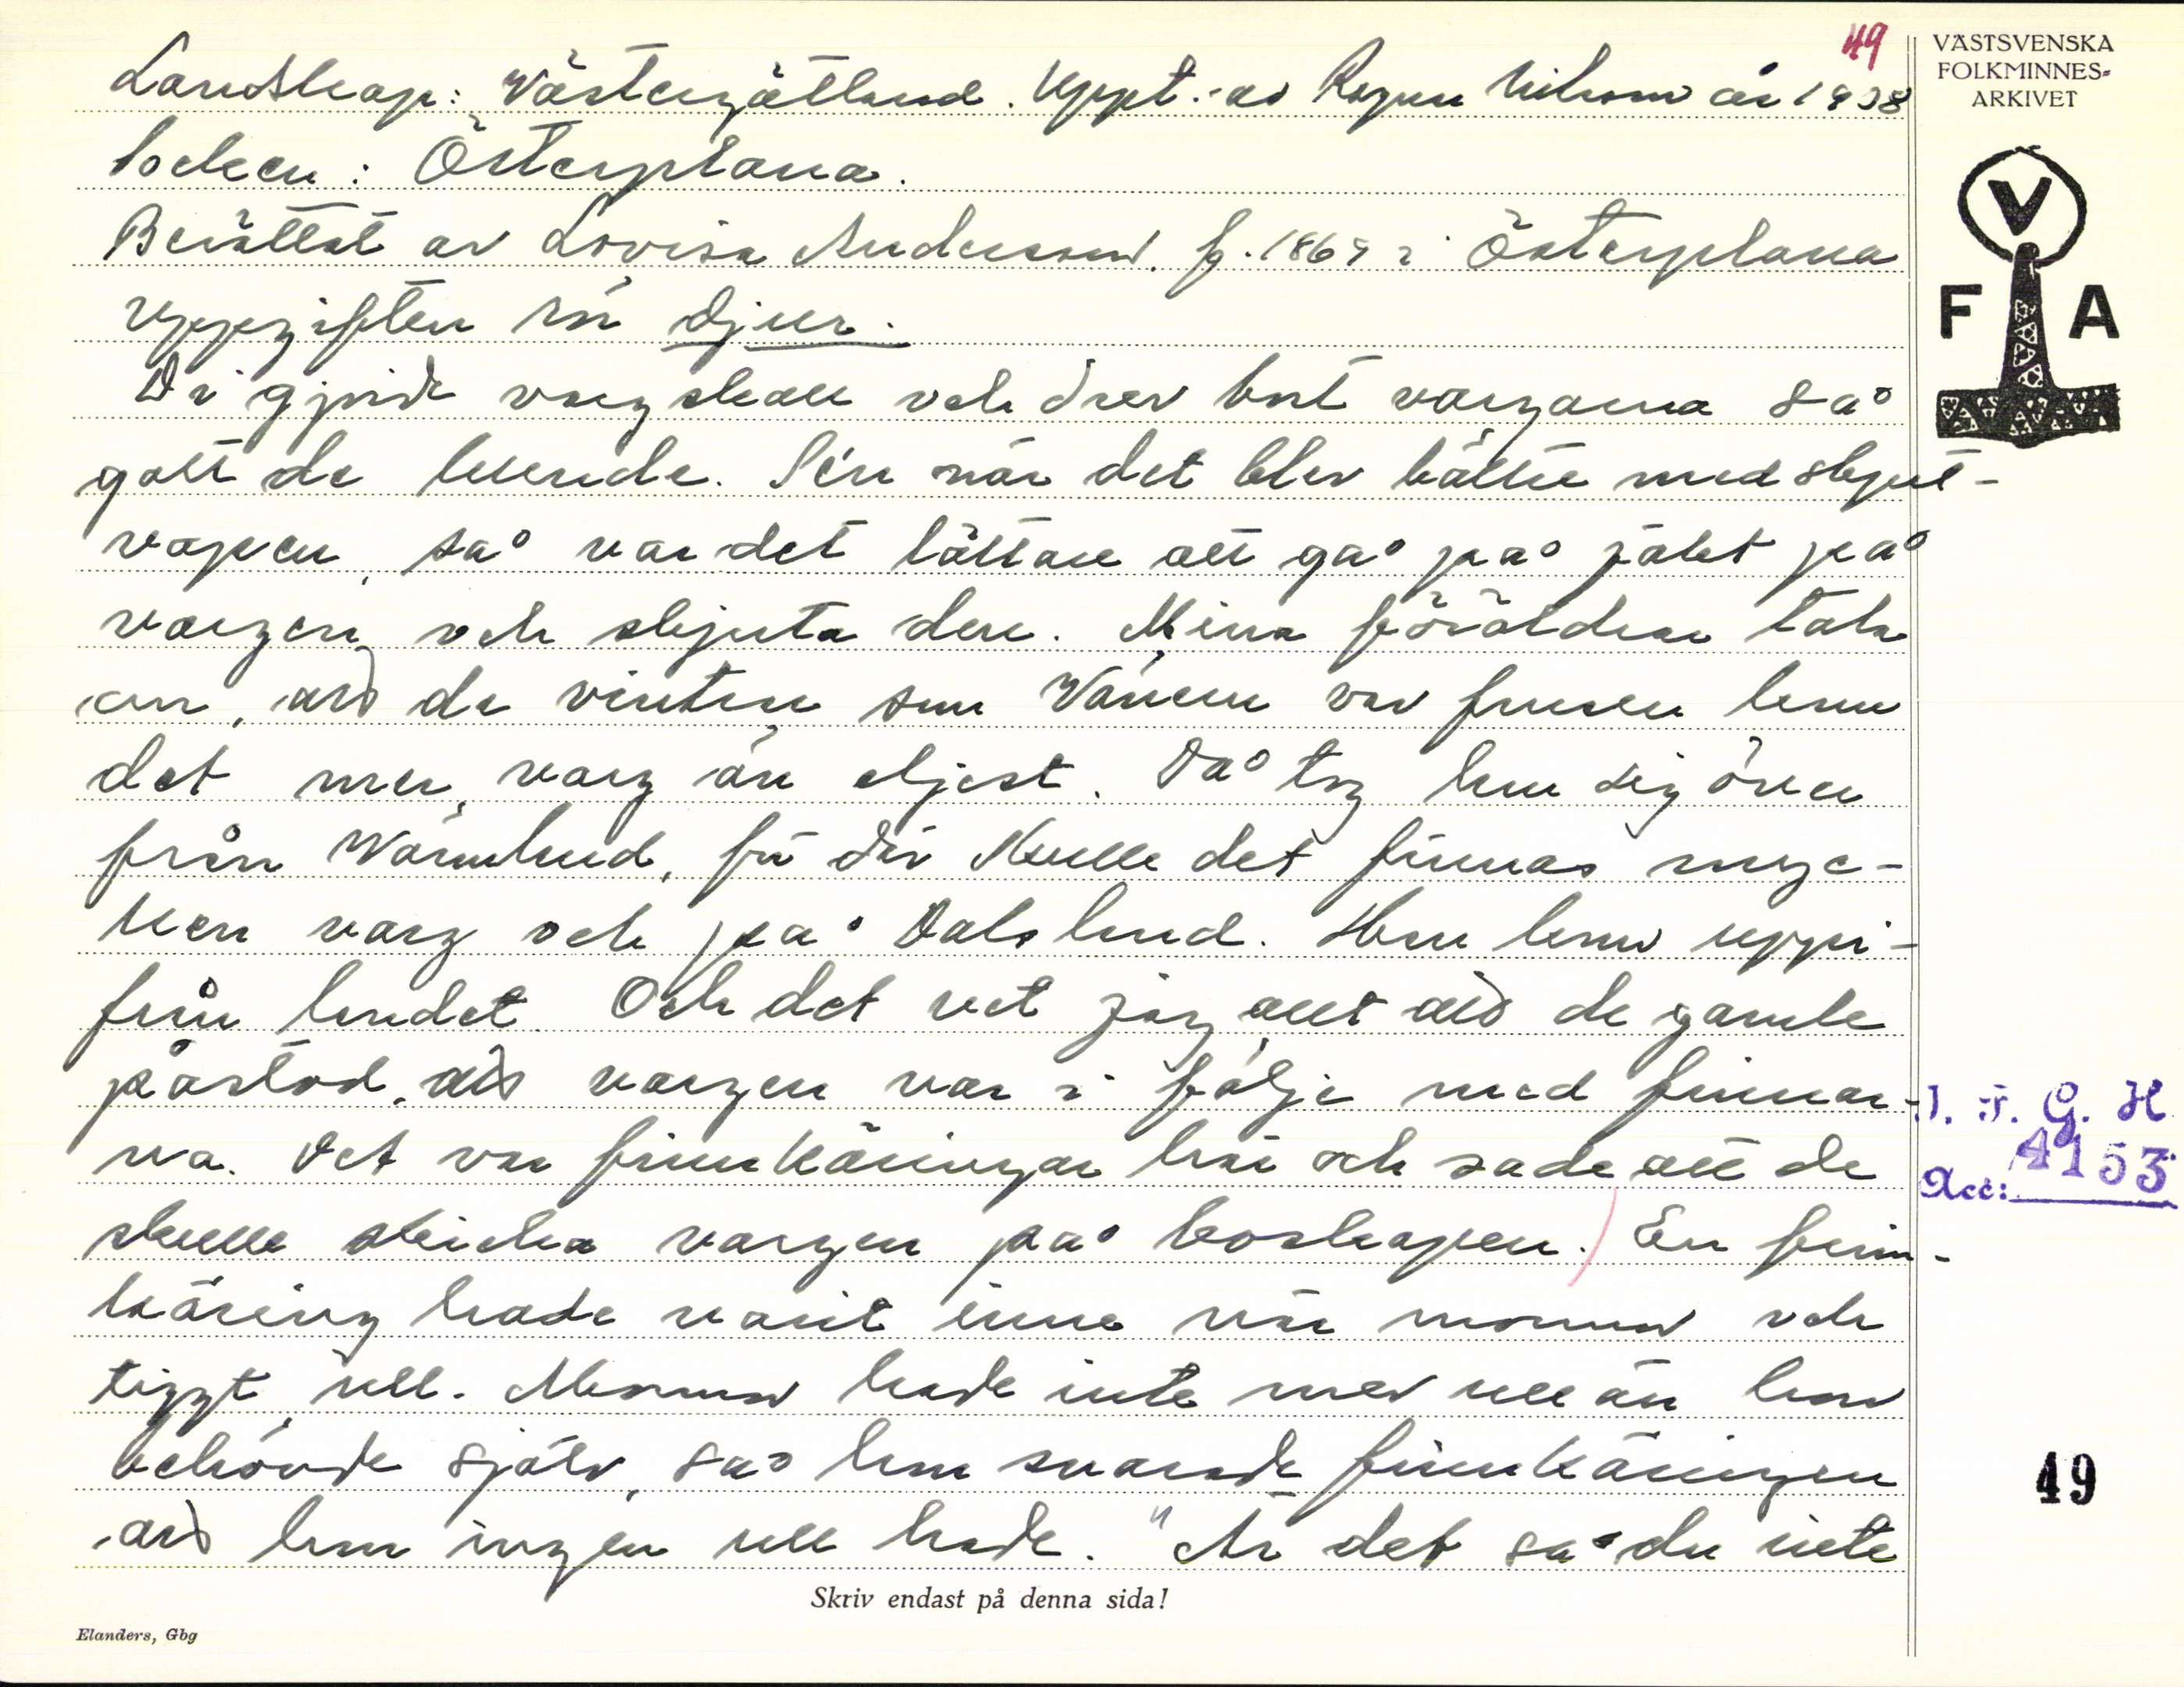 49
VÄSTSVENSKA
FOLKMINNES-
ARKIVET
V
F A
Landskap: Västergötland. Uppt. av Ragnar Nilsson år 1938
Socken: Österplana.
Berättat av Lovisa Andersson. f. 1869 i Österplana
Uppgiften rör djur.
Di gjorde vargskall och drev bort vargarna så
gott de kunde. Sén när det blev bättre med skjut-
vapen, så var det lättare att gå på jakt på
vargen och skjuta den. Mina föräldrar tala
om, att de vintrar som Vänern var frusen kom
det mer varg än eljest. Då tog han sig över
från Värmland, för där skulle det finnas myc-
ken varg och på Dalsland. Han kom uppi-
från landet. Och det vet jag allt att de gamle
påstod, att vargen var i följe med finnar-
na. Det var finnkäringar här och sade att de
skulle skicka vargen på boskapen. En finn-
käring hade varit inne när mormor och
tiggt ull. Mormor hade inte mer ull än hon
behövde själv, så hon svarade finnkäringen
att hon ingen ull hade. "Är det så du inte
I. F. G. H.
Acc: 4153
49
Skriv endast på denna sida!
Elanders, Gbg